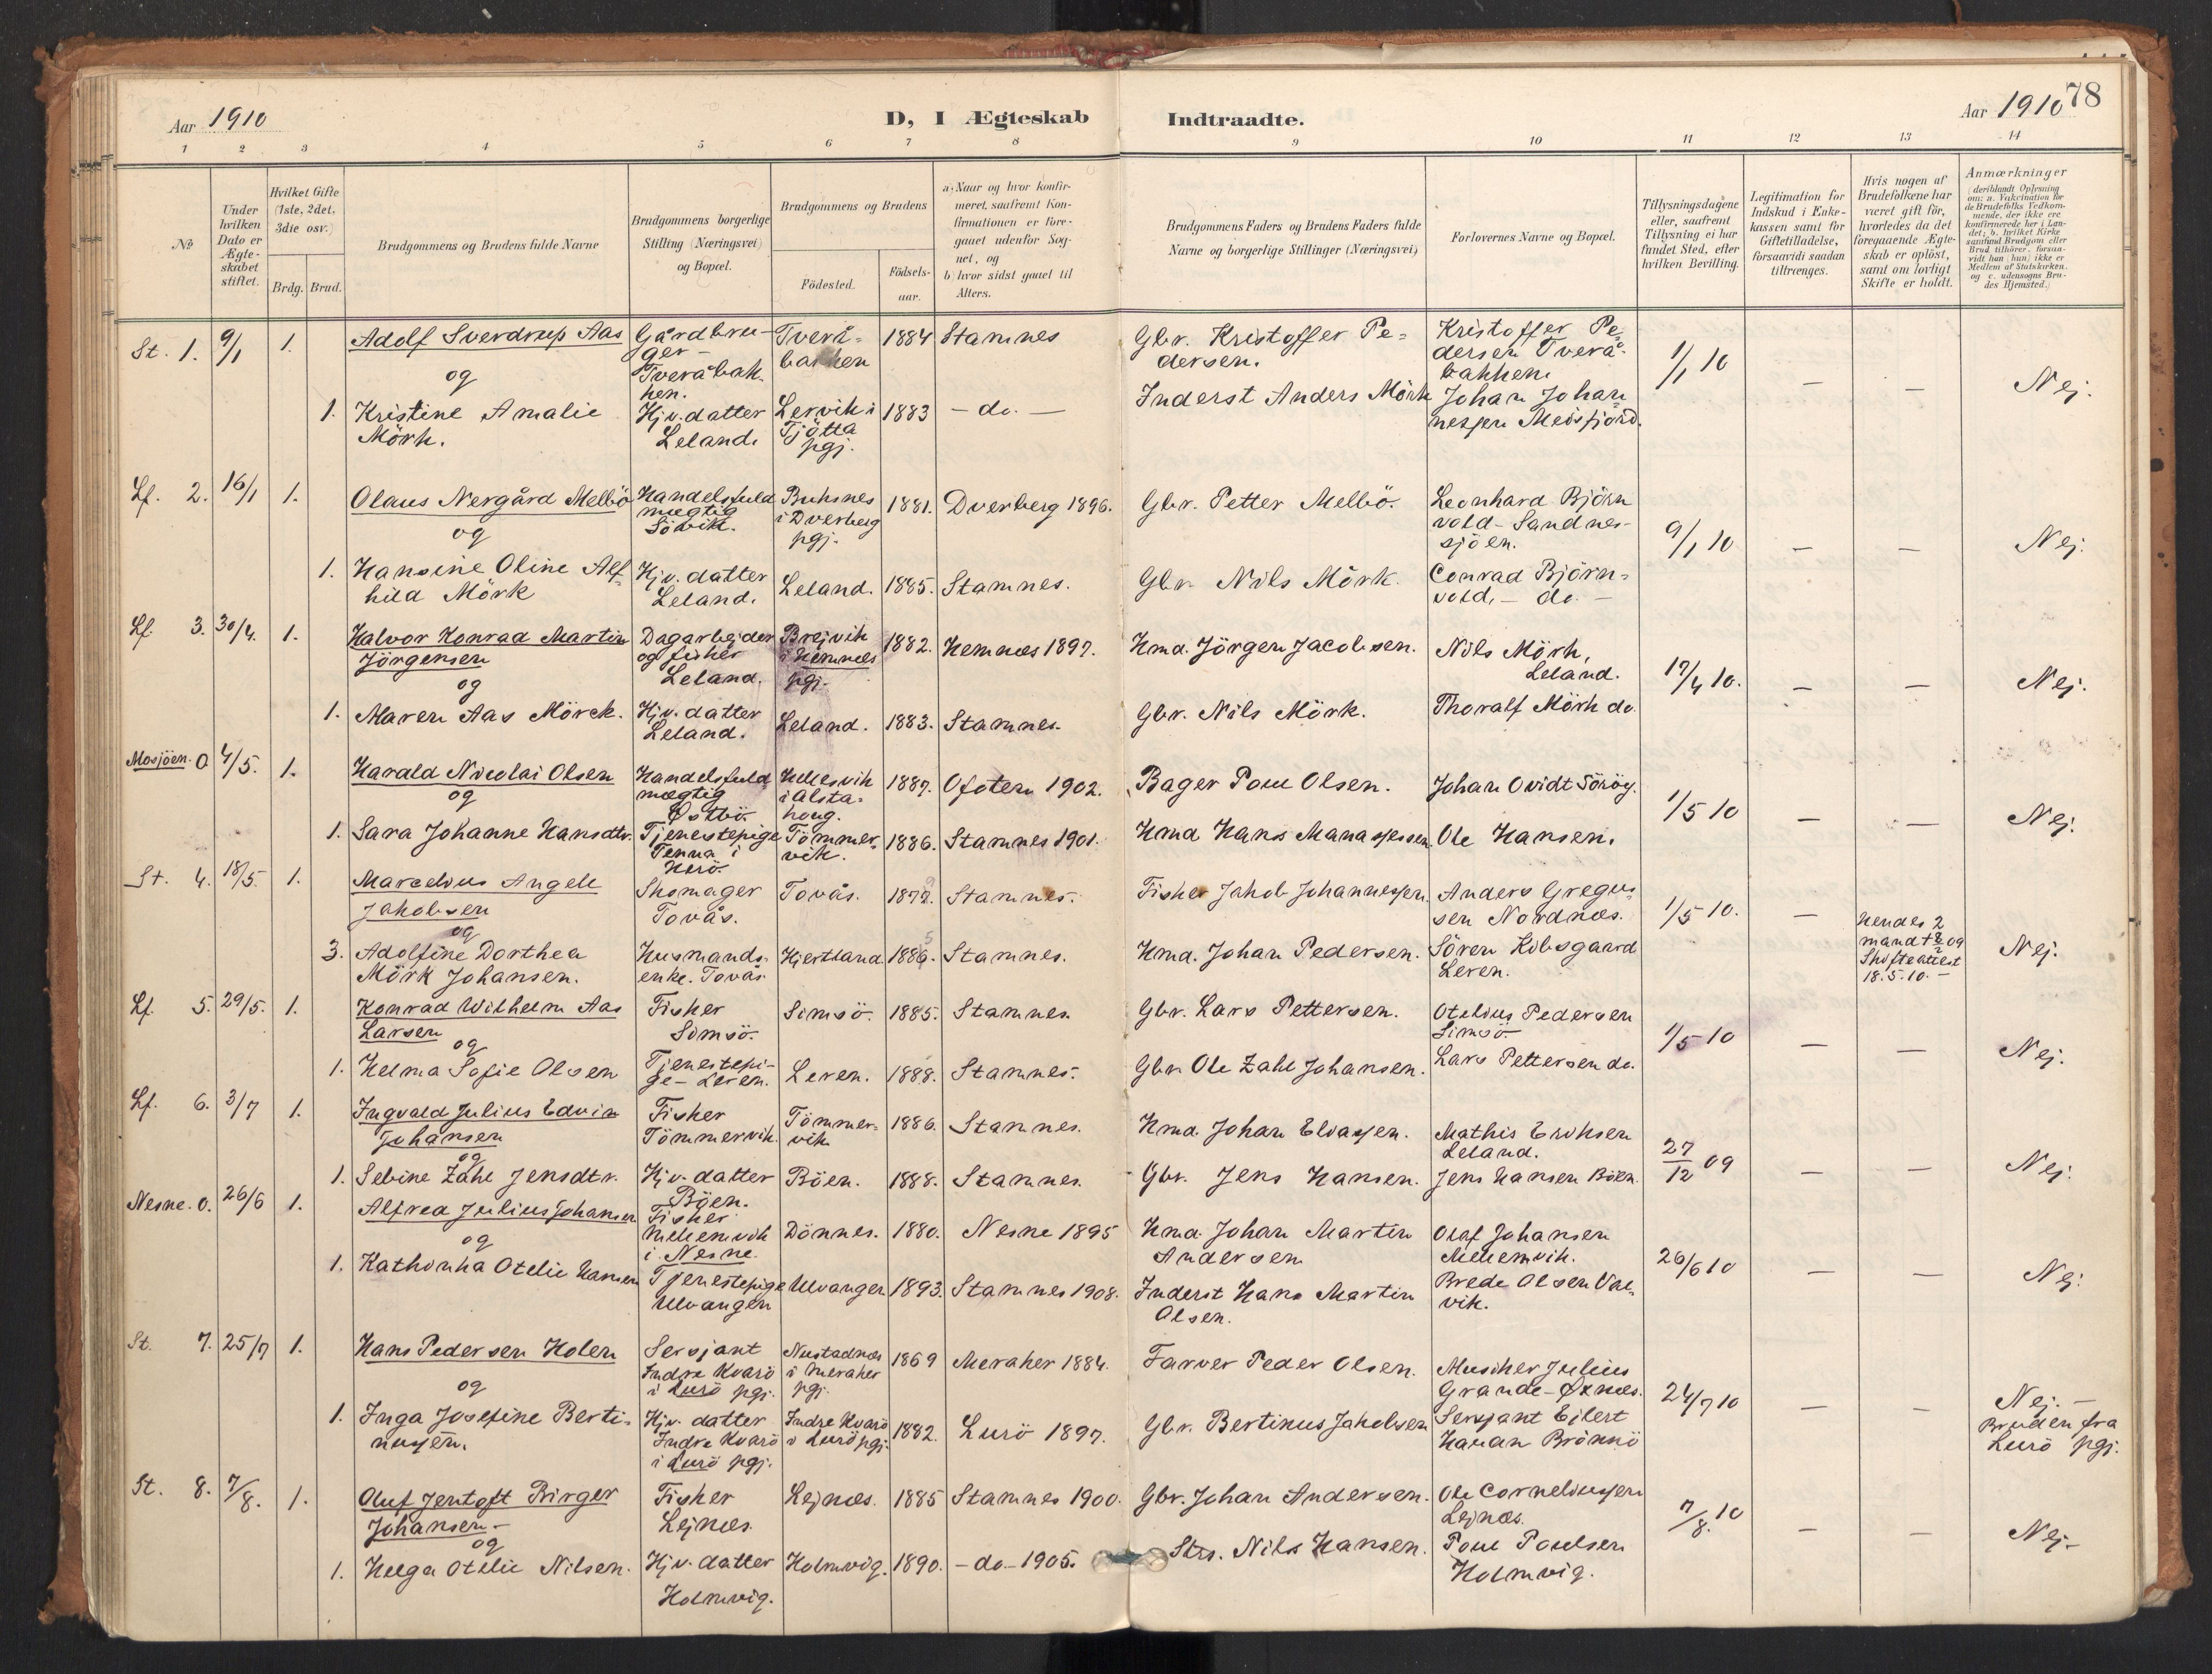 Aar 1910
D, I Ægteskab Indtraadte.
Aar 1910 78
1 2 3 4 5 6 7 8 9 10 11 12 13 14
No
Under hvilken Dato er Ægte-skabet stiftet.
Hvilket Gifte (1ste, 2det, 3die osv.)
Brdg. Brud.
Brudgommens og Brudens fulde Navne
Brudgommens borgerlige Stilling (Næringsvei) og Bopæl.
Brudgommens og Brudens
Födested.
Födsels-aar.
a) Naar og hvor konfir-meret, saafremt Kon-firmationen er fore-gaaet udenfor Sog-net, og
b) hvor sidst gaaet til Alters.
Brudgommens Faders og Brudens Faders fulde Navne og borgerlige Stillinger (Næringsvei)
Forlovernes Navne og Bopæl.
Tillysningsdagene eller, saafremt Tillysning ei har fundet Sted, efter hvilken Bevilling.
Legitimation for Indskud i Enke-kassen samt for Giftetilladelse, forsaavidt saadan tiltrænges.
Hvis nogen af Brudefolkene har været gift för, hvorledes da det foregaaende Ægte-skab er oplöst, samt om lovligt Skifte er holdt.
Anmærkninger
(deriblandt Oplysning om: a. Vakcination for de Brudefolks Vedkom-mende, der ikke ere konfirmerede her i Lan-det; b. hvilket Kirke samfund Brudgom eller Brud tilhörer, forsaa-vidt han (hun) ikke er Medlem af Statskirken, og c. udensogns Bru-des Hjemsted.)
St. 1. 9/1 1. Adolf Sverdrup Aas
og
Gårdbru-
ger -
Tveråbak-
ken.
Tverå-
bakken
1884 Stamnes
Gbr. Kristoffer Pe-
dersen.
Kristoffer Pe-
dersen Tverå-
bakken.
1/1 10 — — Nej.
1. Kristine Amalie
Mörk.
Hjv. datter
Leland.
Lervik i
Tjötta
pgj.
1883 - do. -
Inderst Anders Mörk
Johan Johan-
nessen Meisfjord.
Lf. 2. 16/1 1. Olaus Nergård Melbö
og
Handelsfuld
mægtig
Sövik.
Buksnes
i Dverberg
pgj.
1881. Dverberg 1896.
Gbr. Petter Melbö.
Leonhard Björn
vold - Sandnes-
sjöen.
9/1 10 — — Nej.
1. Hansine Oline Alf-
hild Mörk
Hjv. datter
Leland.
Leland. 1885. Stamnes.
Gbr. Nils Mörk.
Conrad Björn-
vold, - do. -
Lf. 3. 30/4. 1. Halvor Konrad Martin
Jörgensen
og
Dagarbejder
og fisker
Leland.
Brejvik
i Hemnes
pgj.
1882. Hemnæs 1897.
Hmd. Jörgen Jacobsen.
Nils Mörk,
Leland.
17/4 10. — — Nej.
1. Maren Aas Mörck.
Hjv. datter
Leland.
Leland. 1883. Stamnes.
Gbr. Nils Mörk.
Thoralf Mörk do.
Mosjöen. 0 4/5. 1. Harald Nicolai Olsen
og
Handelsfuld
mægtig
Østbö.
i Alsta-
houg.
1887. Ofoten 1902.
Bager Poul Olsen.
Johan Ovidt Söröy.
1/5 10 — — Nej.
1. Sara Johanne Hansdtr.
Tjenestepige
Tenna i
Herö.
Tömmer-
vik.
1886. Stamnes 1901.
Hmd Hans Manassessen.
Ole Hansen.
St. 4. 18/5. 1. Marcelius Angell
Jakobsen
og
Skomager
Tovås.
Tovås. 1879. Stamnes.
Fisker Jakob Johannessen.
Anders Gregus-
sen Nordnæs.
1/5 10. —
Hendes 2
mand † 8/2 09
Skifteattest
18.5.10. -
Nej.
3. Adolfine Dorthea
Mörk Johansen.
Husmands-
enke. Tovås.
Hjertland. 1885. Stamnes.
Hmd. Johan Pedersen.
Sören Kibsgaard
Leren.
Lf. 5. 29/5. 1. Konrad Wilhelm Aas
Larsen
og
Fisker
Simsö.
Simsö. 1885. Stamnes.
Gbr. Lars Pettersen.
Otelius Pedersen
Simsö.
1/5 10 — — Nej.
1. Helma Sofie Olsen
Tjenestepi-
ge - Leren.
Leren. 1888. Stamnes.
Gbr. Ole Zahl Johansen.
Lars Pettersen do.
Lf. 6. 3/7 1. Ingvald Julius Edvin
Johansen
og
Fisker
Tömmervik.
Tömmer-
vik
1886. Stamnes.
Hmd. Johan Eliassen.
Mathis Eriksen
Leland.
27/12 09 — — Nej.
1. Sebine Zahl Jensdtr.
Hjv. datter
Böen.
Böen. 1888. Stamnes.
Gbr. Jens Hansen.
Jens Hansen Böen.
Nesne. 0. 26/6 1. Alfred Julius Johansen
og
Fisker
Mellemvik
i Nesne.
Dönnes. 1880. Nesne 1895
Hmd. Johan Martin
Andersen
Olaf Johansen
Mellemvik.
26/6 10 — — Nej.
1. Kathinka Otelie Hansen
Tjenestepige
Ulvangen
Ulvangen 1893. Stamnes 1908.
Inderst Hans Martin
Olsen.
Brede Olsen Val-
vik.
St. 7. 25/7 1. Hans Pedersen Holen
og
Sersjant
Indre Kvarö
i Lurö pgj.
Nustadnæs
i Meraker
pgj.
1869 Meraker 1884.
Farver Peder Olsen.
Musiker Julius
Grande - Øxnes.
24/7 10 — — Nej. -
Bruden fra
Lurö pgj.
1. Inga Josefine Berti-
nussen.
Hjv. datter
Indre Kvarö
i Lurö pgj.
Indre Kvarö
i Lurö pgj.
1882. Lurö 1897.
Gbr. Bertinus Jakobsen
Sersjant Eilert
Hanan Brönnö
St. 8. 7/8. 1. Oluf Jentoft Birger
Johansen -
og
Fisker
Lejnæs.
Lejnæs. 1885 Stamnes 1900.
Gbr. Johan Andersen.
Ole Corneliussen
Lejnæs.
7/8. 10 — — Nej. -
1. Helga Otelie Nilsen.
Hjv. datter
Holmvig.
Holmvig. 1890. - do - 1905.
Strs. Nils Hansen.
Poul Poulsen
Holmvig.